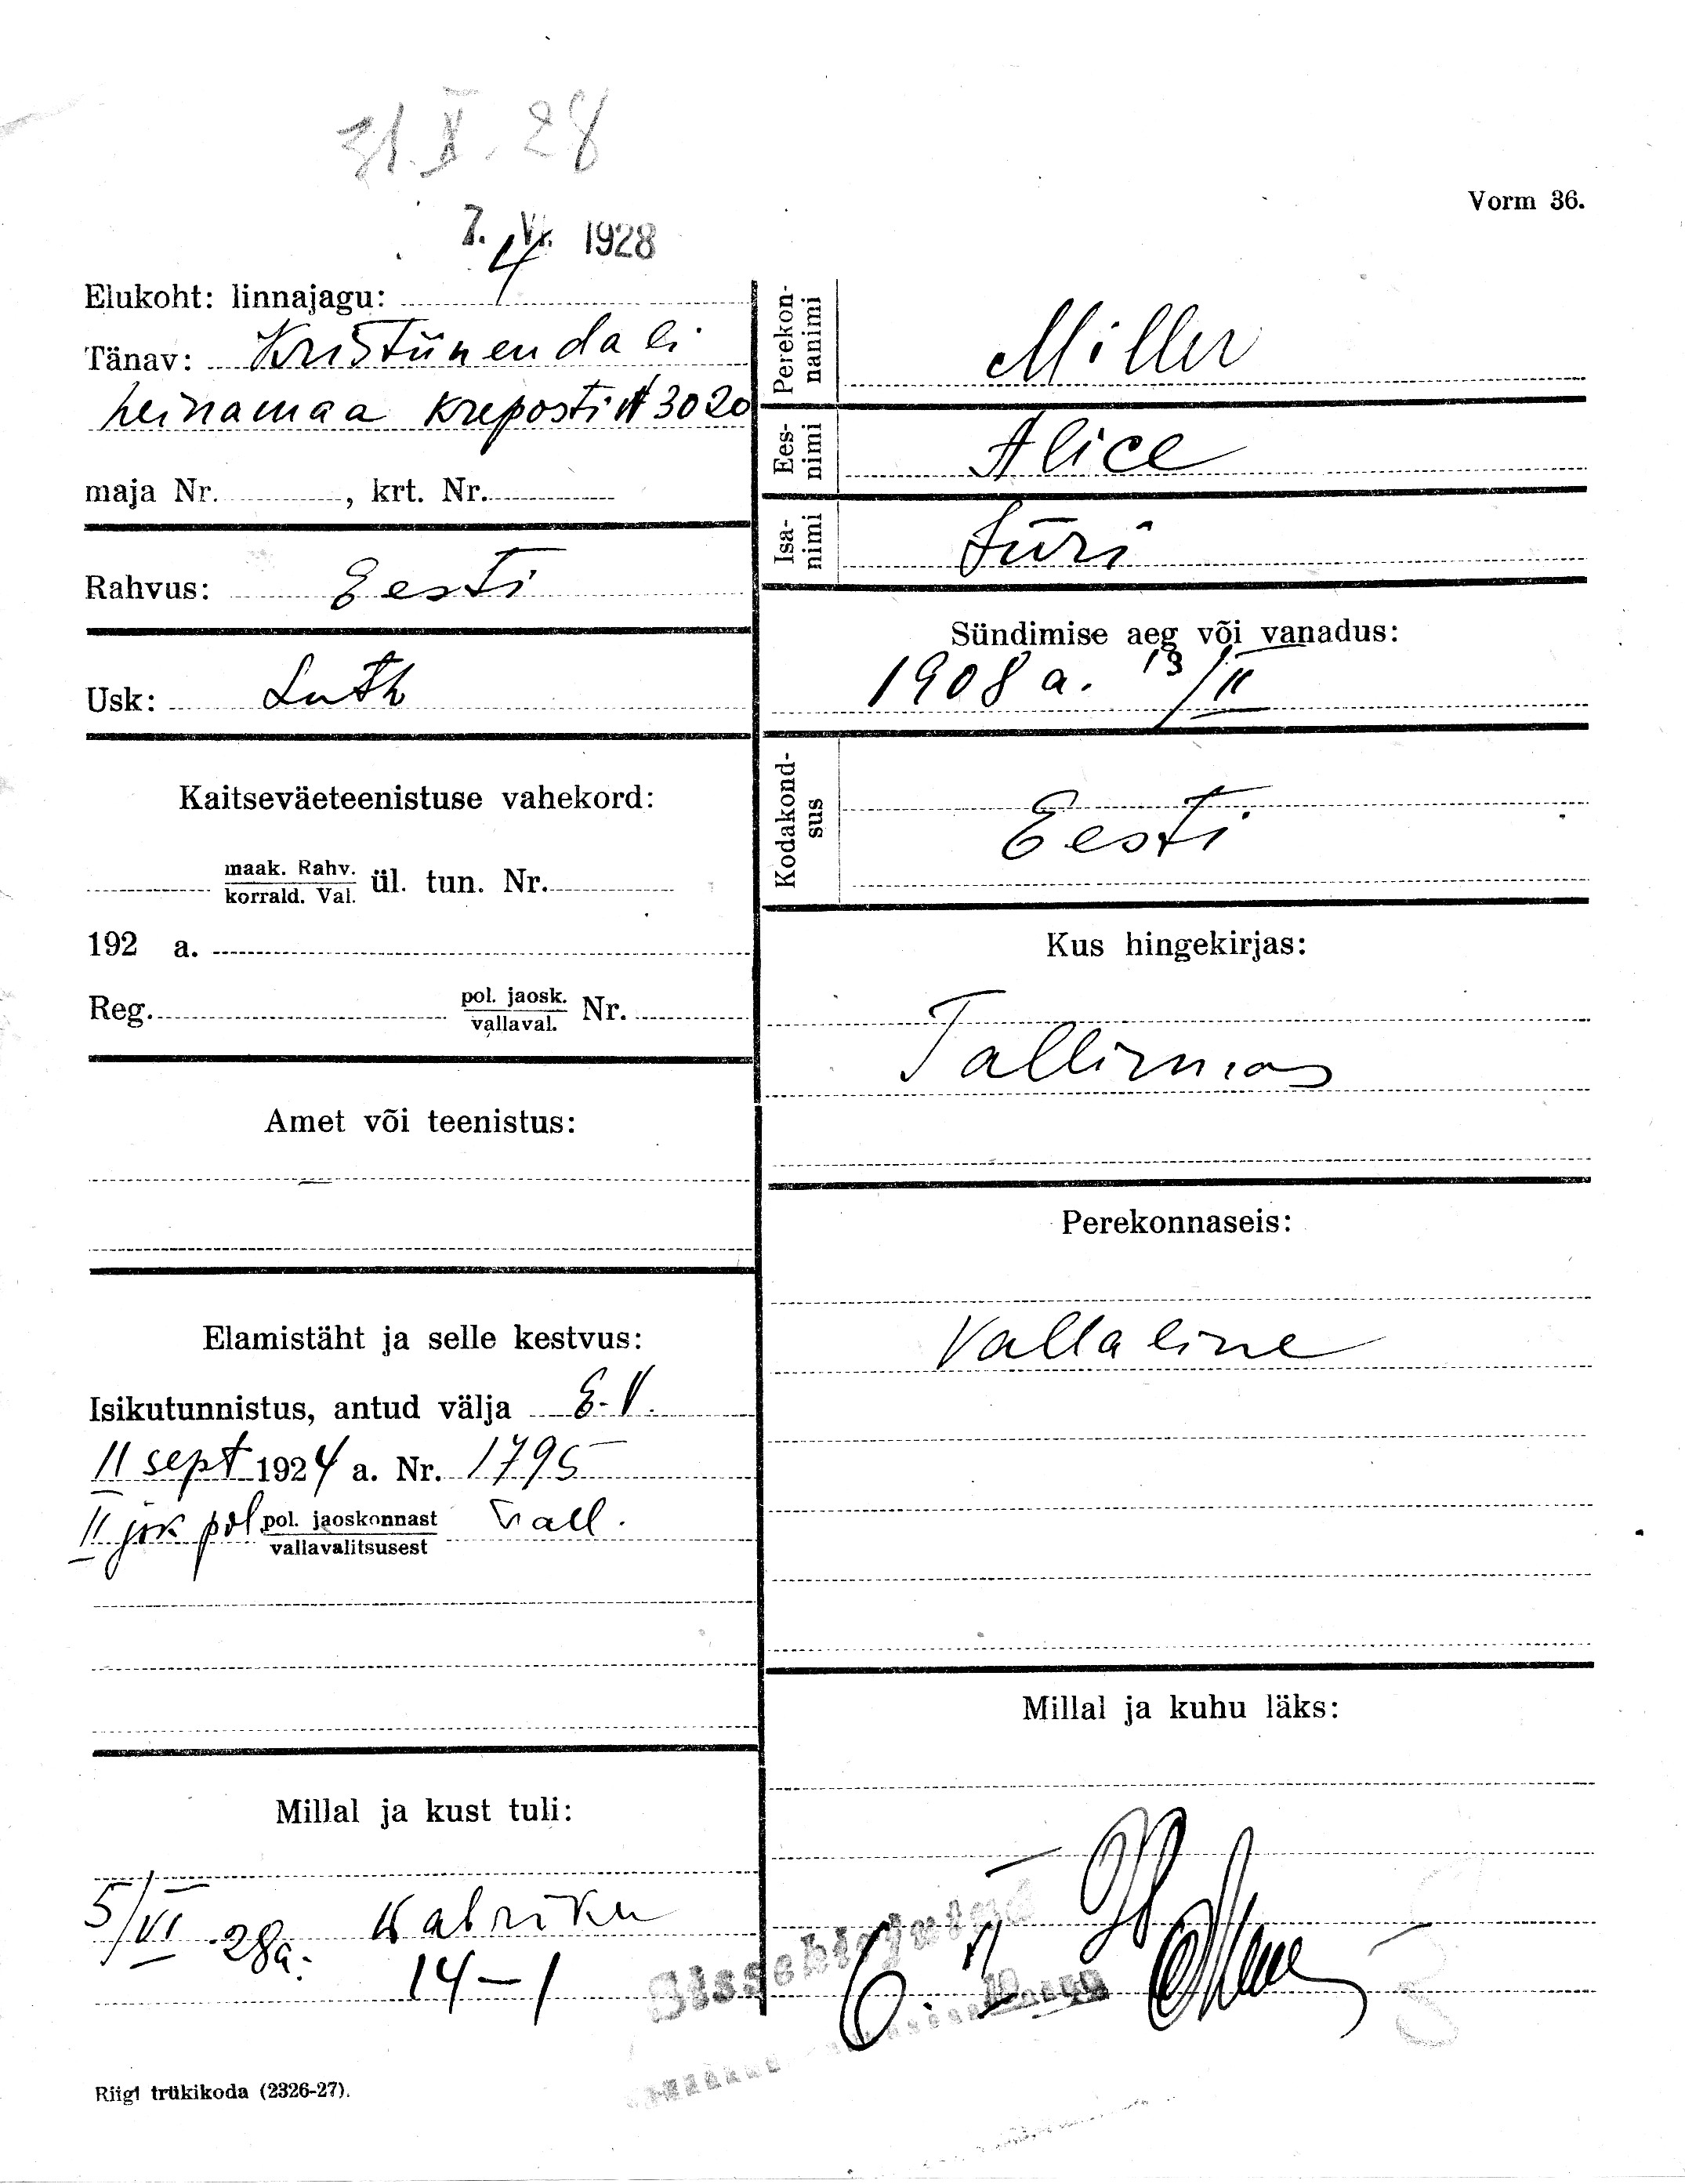 31. V. 28
7. VI. 1928
Vorm 36.
Elukoht: linnajagu: 4
Tänav: Kristiinendali
heinamaa kreposti № 3020
maja Nr. , krt. Nr.
Rahvus: Eesti
Usk: Luth
Kaitseväeteenistuse vahekord:
maak. Rahv.
korrald. Val. ül. tun. Nr.
192 a.
Reg. pol. jaosk.
vallaval. Nr.
Amet või teenistus:
—
Elamistäht ja selle kestvus:
Isikutunnistus, antud välja E-V.
11 sept 1924 a. Nr. 1795
II jsk pol pol. jaoskonnast Tall.
vallavalitsusest
Millal ja kust tuli:
5/VI 28a. Kabriku
14–1
Perekon-
nanimi
Miller
Ees-
nimi
Alice
Isa-
nimi
Jüri
Sündimise aeg või vanadus:
1908 a. 13/II
Kodakond-
sus
Eesti
Kus hingekirjas:
Tallinnas
Perekonnaseis:
Vallaline
Millal ja kuhu läks:
Sissekirjutatud
Riigi trükikoda (2326-27).